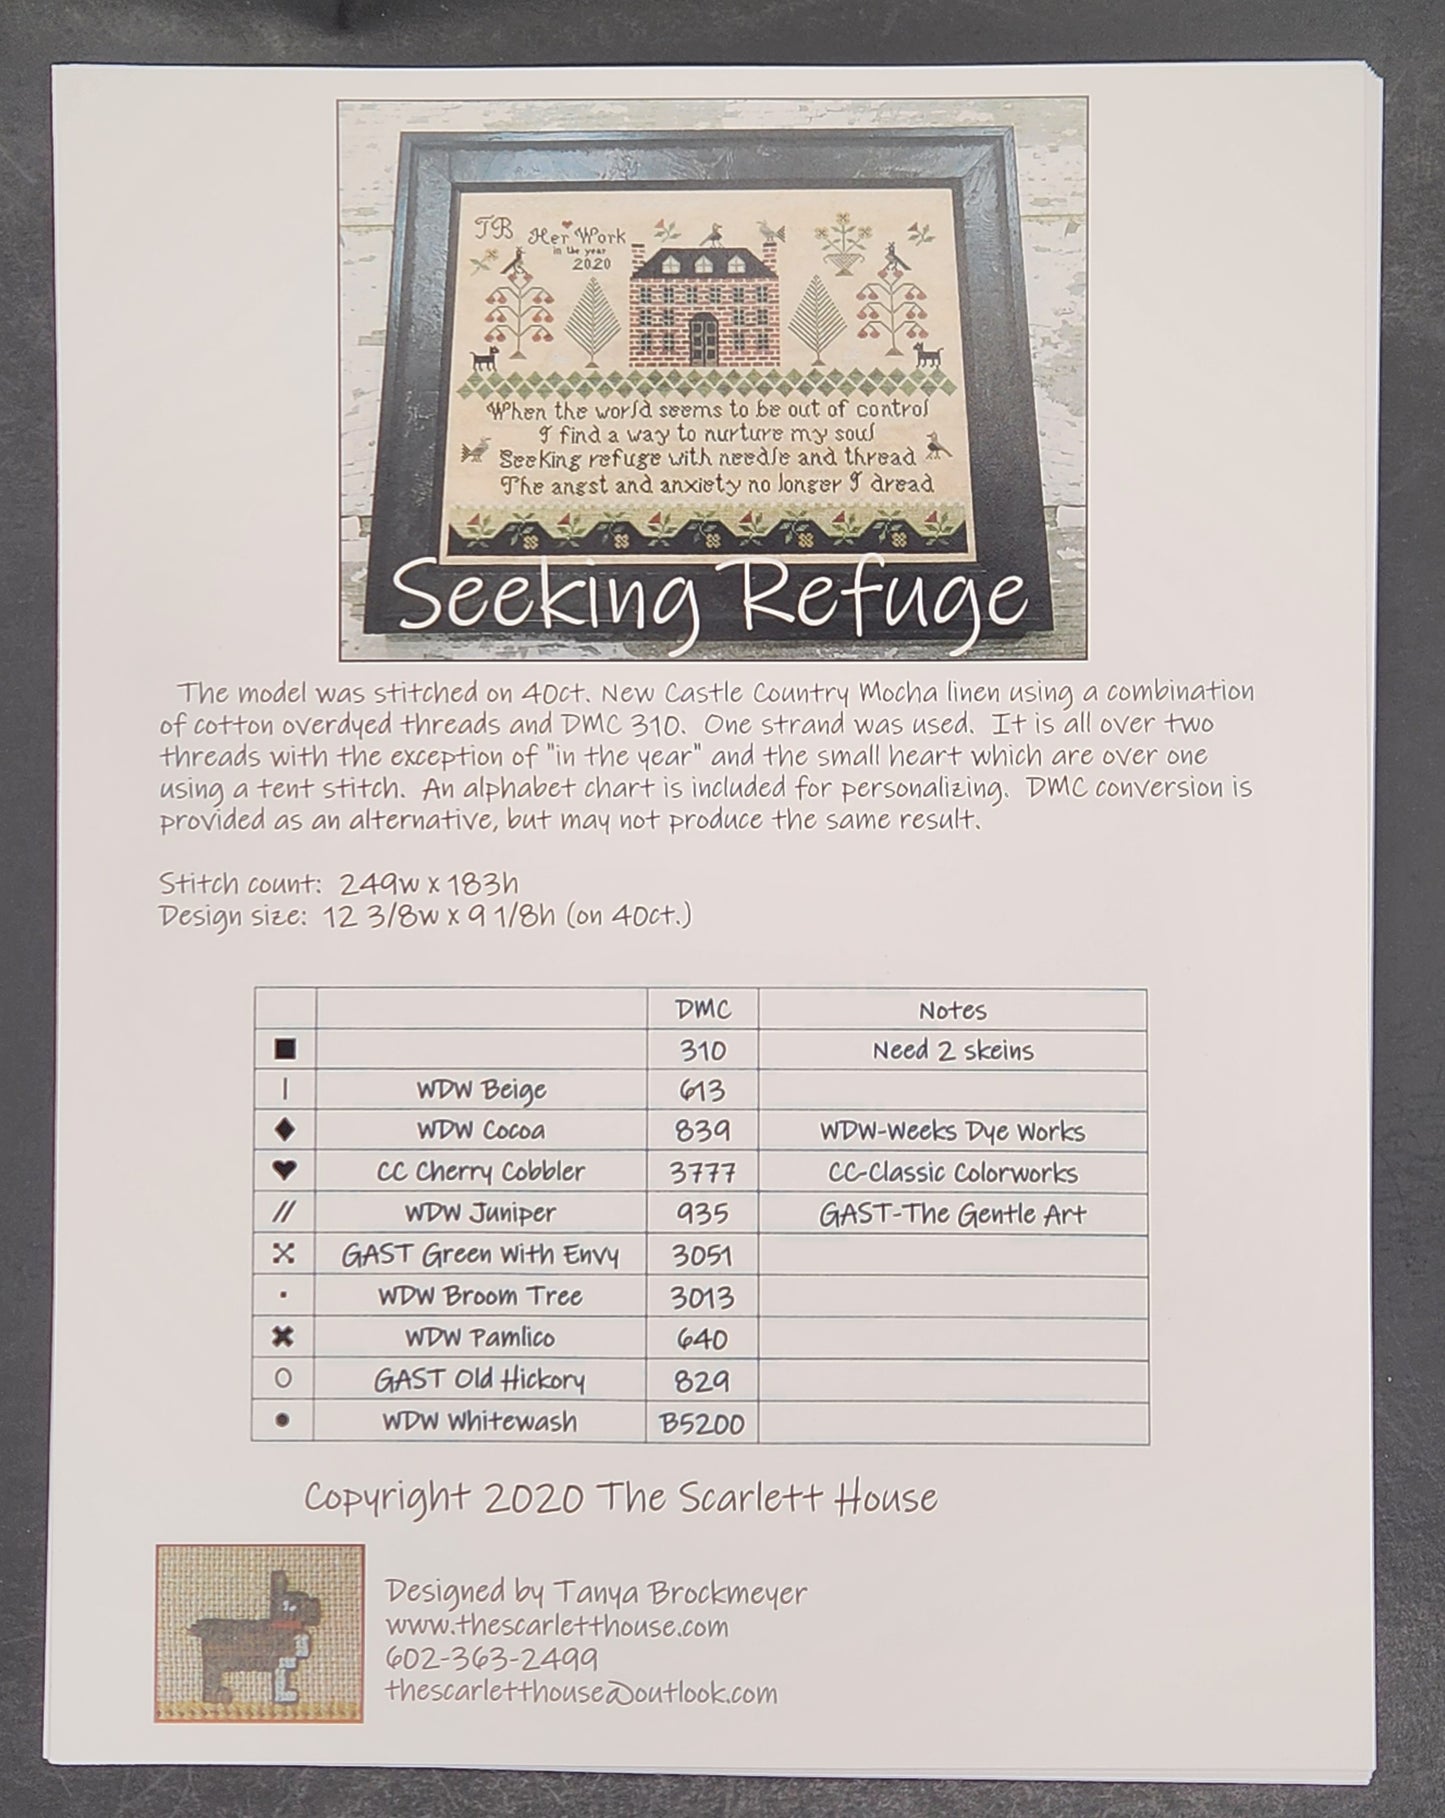 TB Her Work
in the year
2020
When the world seems to be out of control
I find a way to nurture my soul
Seeking refuge with needle and thread
The angst and anxiety no longer I dread
Seeking Refuge
The model was stitched on 40ct. New Castle Country Mocha linen using a combination
of cotton overdyed threads and DMC 310. One strand was used. It is all over two
threads with the exception of "in the year" and the small heart which are over one
using a tent stitch. An alphabet chart is included for personalizing. DMC conversion is
provided as an alternative, but may not produce the same result.
Stitch count: 249w x 183h
Design size: 12 3/8w x 9 1/8h (on 40ct.)
DMC Notes
310 Need 2 skeins
WDW Beige 613
WDW Cocoa 839 WDW-Weeks Dye Works
CC Cherry Cobbler 3777 CC-Classic Colorworks
WDW Juniper 935 GAST-The Gentle Art
GAST Green With Envy 3051
WDW Broom Tree 3013
WDW Pamlico 640
GAST Old Hickory 829
WDW Whitewash B5200
Copyright 2020 The Scarlett House
Designed by Tanya Brockmeyer
www.thescarletthouse.com
602-363-2499
thescarletthouse@outlook.com